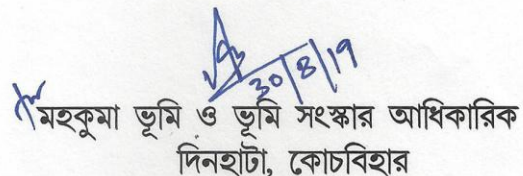 30/8/19
মহকুমা ভূমি ও ভূমি সংস্কার আধিকারিক
দিনহাটা, কোচবিহার